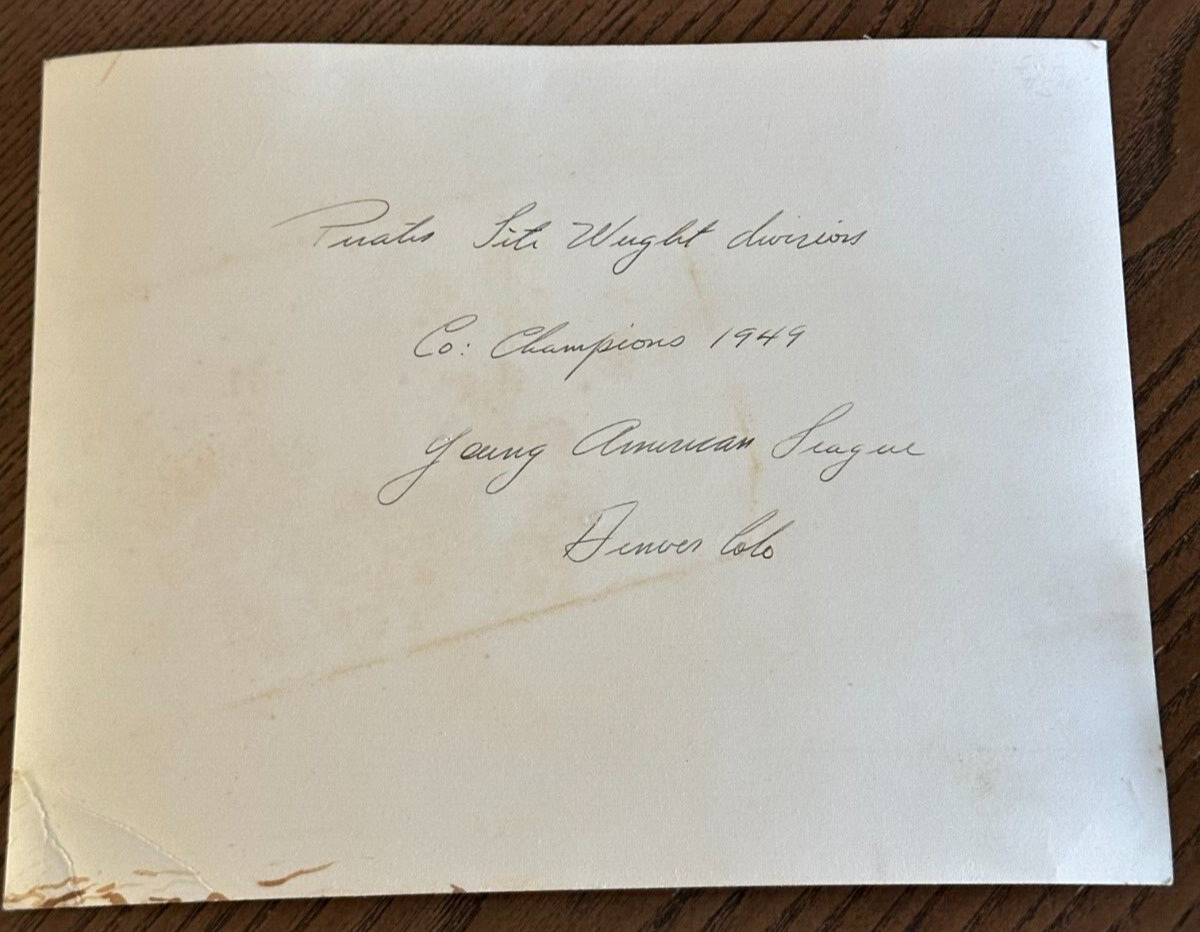 Pirates Lite Weight division
Co: Champions 1949
Young American League
Denver Colo